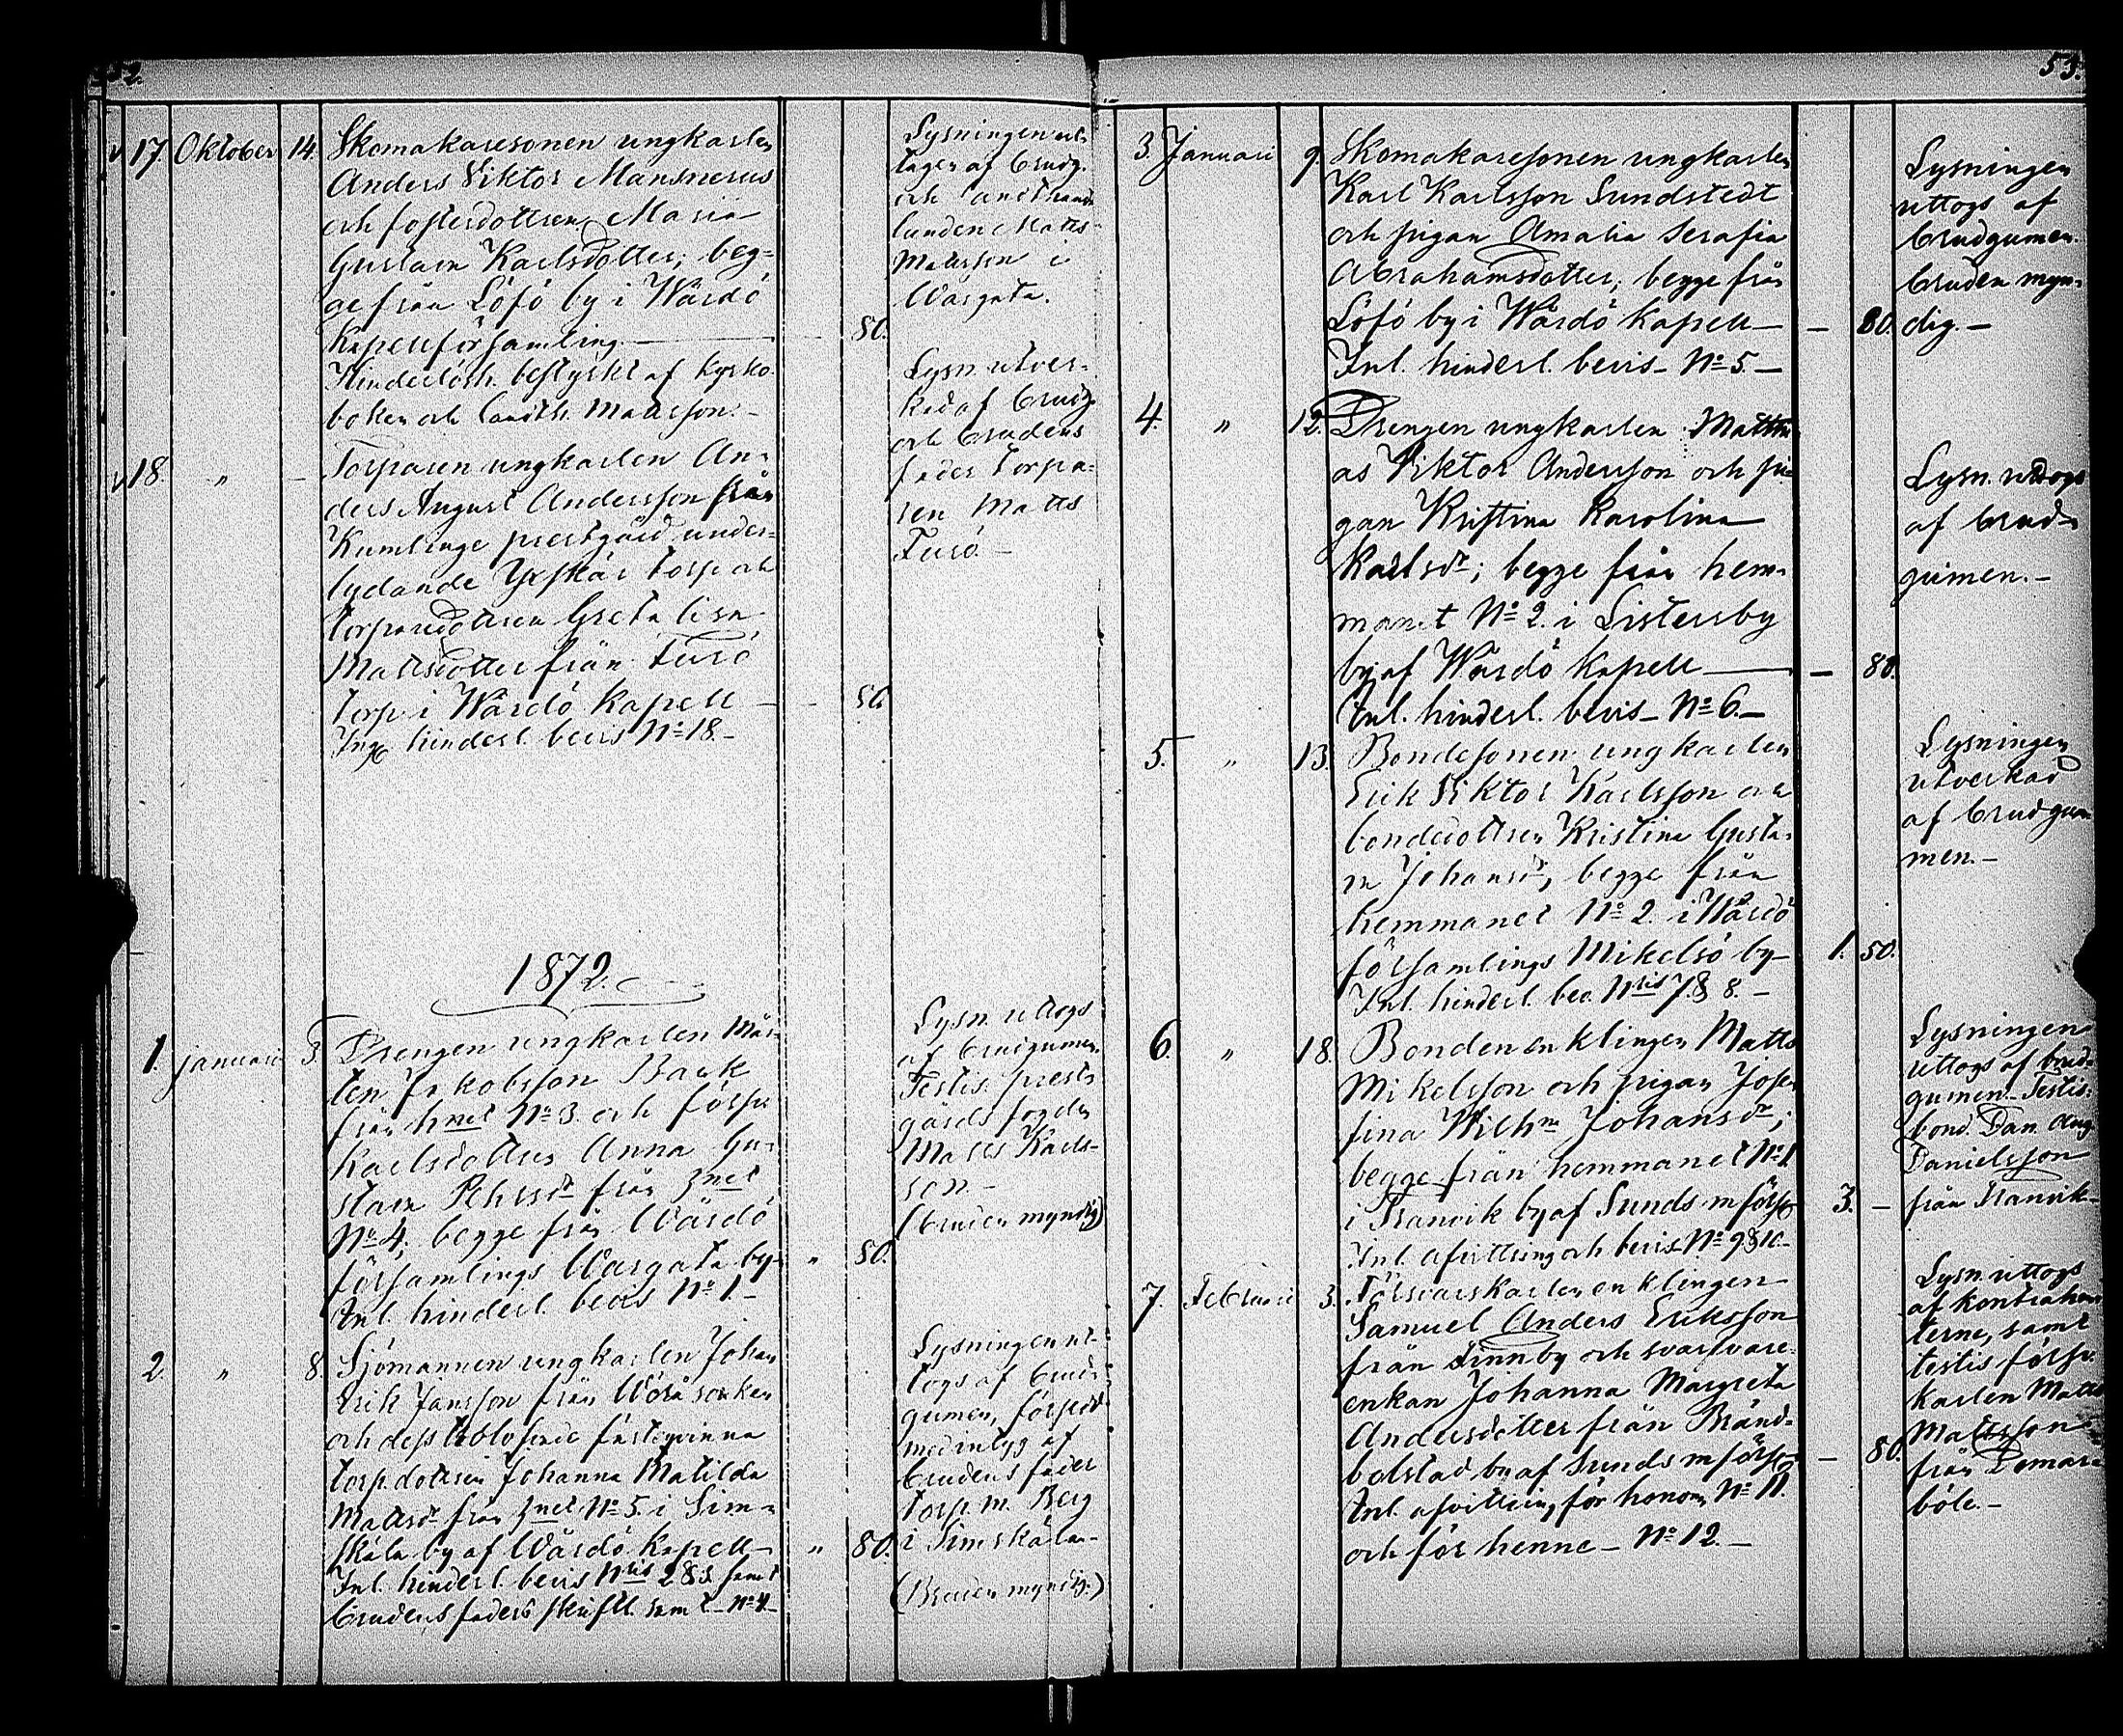 52.
17. Oktober 14. Skomakaresonen ungkarlen
Anders Viktor Mansnerus
och fosterdottren Maria
Gustava Karlsdotter; beg-
ge från Löfö by i Wårdö
Kapellförsamling. — 80.
Hinderlösh. bestyrkt af kyrko-
boken och landth. Mattsson. -
Lysningen ut-
tagen af brudg.
och landthand-
landen Matts
Mattsson i
Wargata.
18. „ - Torparen ungkarlen An-
ders August Andersson från
Kumlinge prestgård under-
lydande Yxskär torp och
torparedottren Greta Lisa
Mattsdotter från Turö
torp i Wårdö Kapell - 80.
Ing. hinderl. bevis No 18. -
Lysn. utver-
kad af brudg.
och brudens
fader torpa-
ren Matts
Turö. -
1872.
1. Januari 3. Drengen ungkarlen Mår-
ten Jakobsson Back
från hmet No 3. och försv.
karlsdottren Anna Gu-
stava Pehrsdr från hmet
No 4, begge från Wårdö
församlings Wargata by- „ 80.
Inl. hinderl. bevis No 1. -
Lysn. uttogs
af brudgumen.
Testis: prest-
gårds fogden
Matts Karls-
son. -
(bruden myndig)
2. „ 8. Sjömannen ungkarlen Johan
Erik Jansson från Wörå socken
och dess trolofvade fästeqvinna
torp.dottren Johanna Matilda
Mattsdr från hmet No 5. i Sim-
skäla by af Wårdö Kapell - „ 80.
Inl. hinderl. bevis Nris 2 & 3. samt
brudens faders skriftl. samt. - No 4. -
Lysningen ut-
togs af brud-
gumen, försedd
med intyg af
brudens fader
torp. M. Berg
i Simskäla. -
(Bruden myndig.)
53.
3. Januari 9. Skomakaresonen ungkarlen
Karl Karlsson Sundstedt
och pigan Amalia Serafia
Abrahamsdotter; begge från
Löfö by i Wårdö Kapell - — 80.
Inl. hinderl. bevis - No 5. -
Lysningen
uttogs af
brudgumen.
bruden myn-
dig. -
4. „ 12. Drengen ungkarlen Matthi-
as Viktor Andersson och pi-
gan Kristina Karolina
Karlsdr; begge från hem-
manet No 2. i Listersby
by af Wårdö Kapell — — 80.
Inl. hinderl. bevis - No 6. -
Lysn. uttogs
af brud-
gumen. -
5. „ 13. Bondesonen ungkarlen
Erik Viktor Karlsson och
bondedottren Kristina Gusta-
va Johansdr, begge från
hemmanet No 2. i Wårdö
församlings Mikelsö by - 1. 50.
Inl. hinderl. bev. Nris 7. & 8. -
Lysningen
utverkad
af brudgum-
men. -
6. „ 18. Bonden enklingen Matts
Mikelsson och pigan Jose-
fina Wilhma Johansdr;
begge från hemmanet No 1
i Tranvik by af Sunds m förs: 3. -
Inl. afvittring och bevis - No 9 & 10. -
Lysningen
uttogs af brud-
gumen. - Testis:
bond. Dan. Aug.
Danielsson
från Tranvik -
7. Februari 3. Försvarskarlen enklingen
Samuel Anders Eriksson
från Finnby och svarfvare-
enkan Johanna Margreta
Andersdotter från Bränd-
bolstad by af Sunds m förs: — 80.
Inl. afvittring för honom No 11.
och för henne - No 12. -
Lysn. uttogs
af kontrahen-
terne, samt
testis försv.
karlen Matts
Mattsson
från Domare-
böle. -